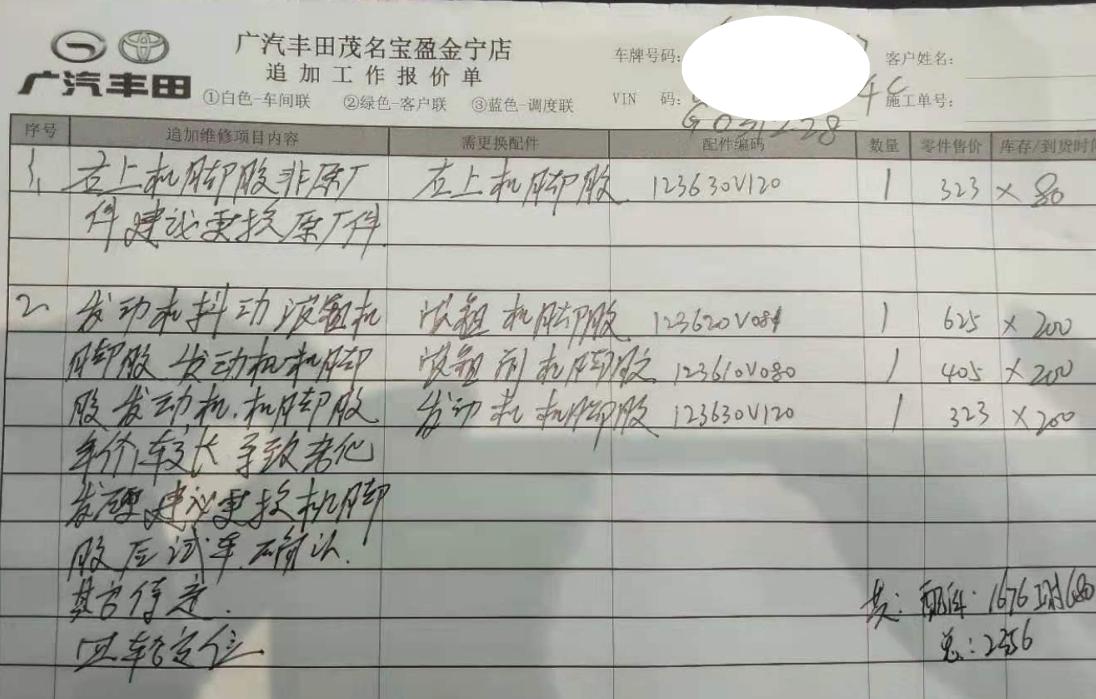 广汽丰田茂名宝盈金宁店
追加工作报价单
广汽丰田
①白色-车间联 ②绿色-客户联 ③蓝色-调度联
车牌号码:
客户姓名:
VIN 码:
G031228
施工单号:
序号 追加维修项目内容 需更换配件 配件编码 数量 零件售价 库存/到货时间
1、 右上机脚胶非原厂 右上机脚胶 123630V120 1 323 × 80
件建议更换原厂件
2、 发动机抖动波箱机 波箱机脚胶 123620V084 1 625 × 200
脚胶发动机机脚 波箱前机脚胶 123610V080 1 405 × 200
胶发动机.机脚胶 发动机机脚胶 123630V120 1 323 × 200
年价较长导致老化
发硬建议更换机脚
胶后试车.确认.
其它待定. 共: 配件: 1676 工时680
四轮定位 总: 2356